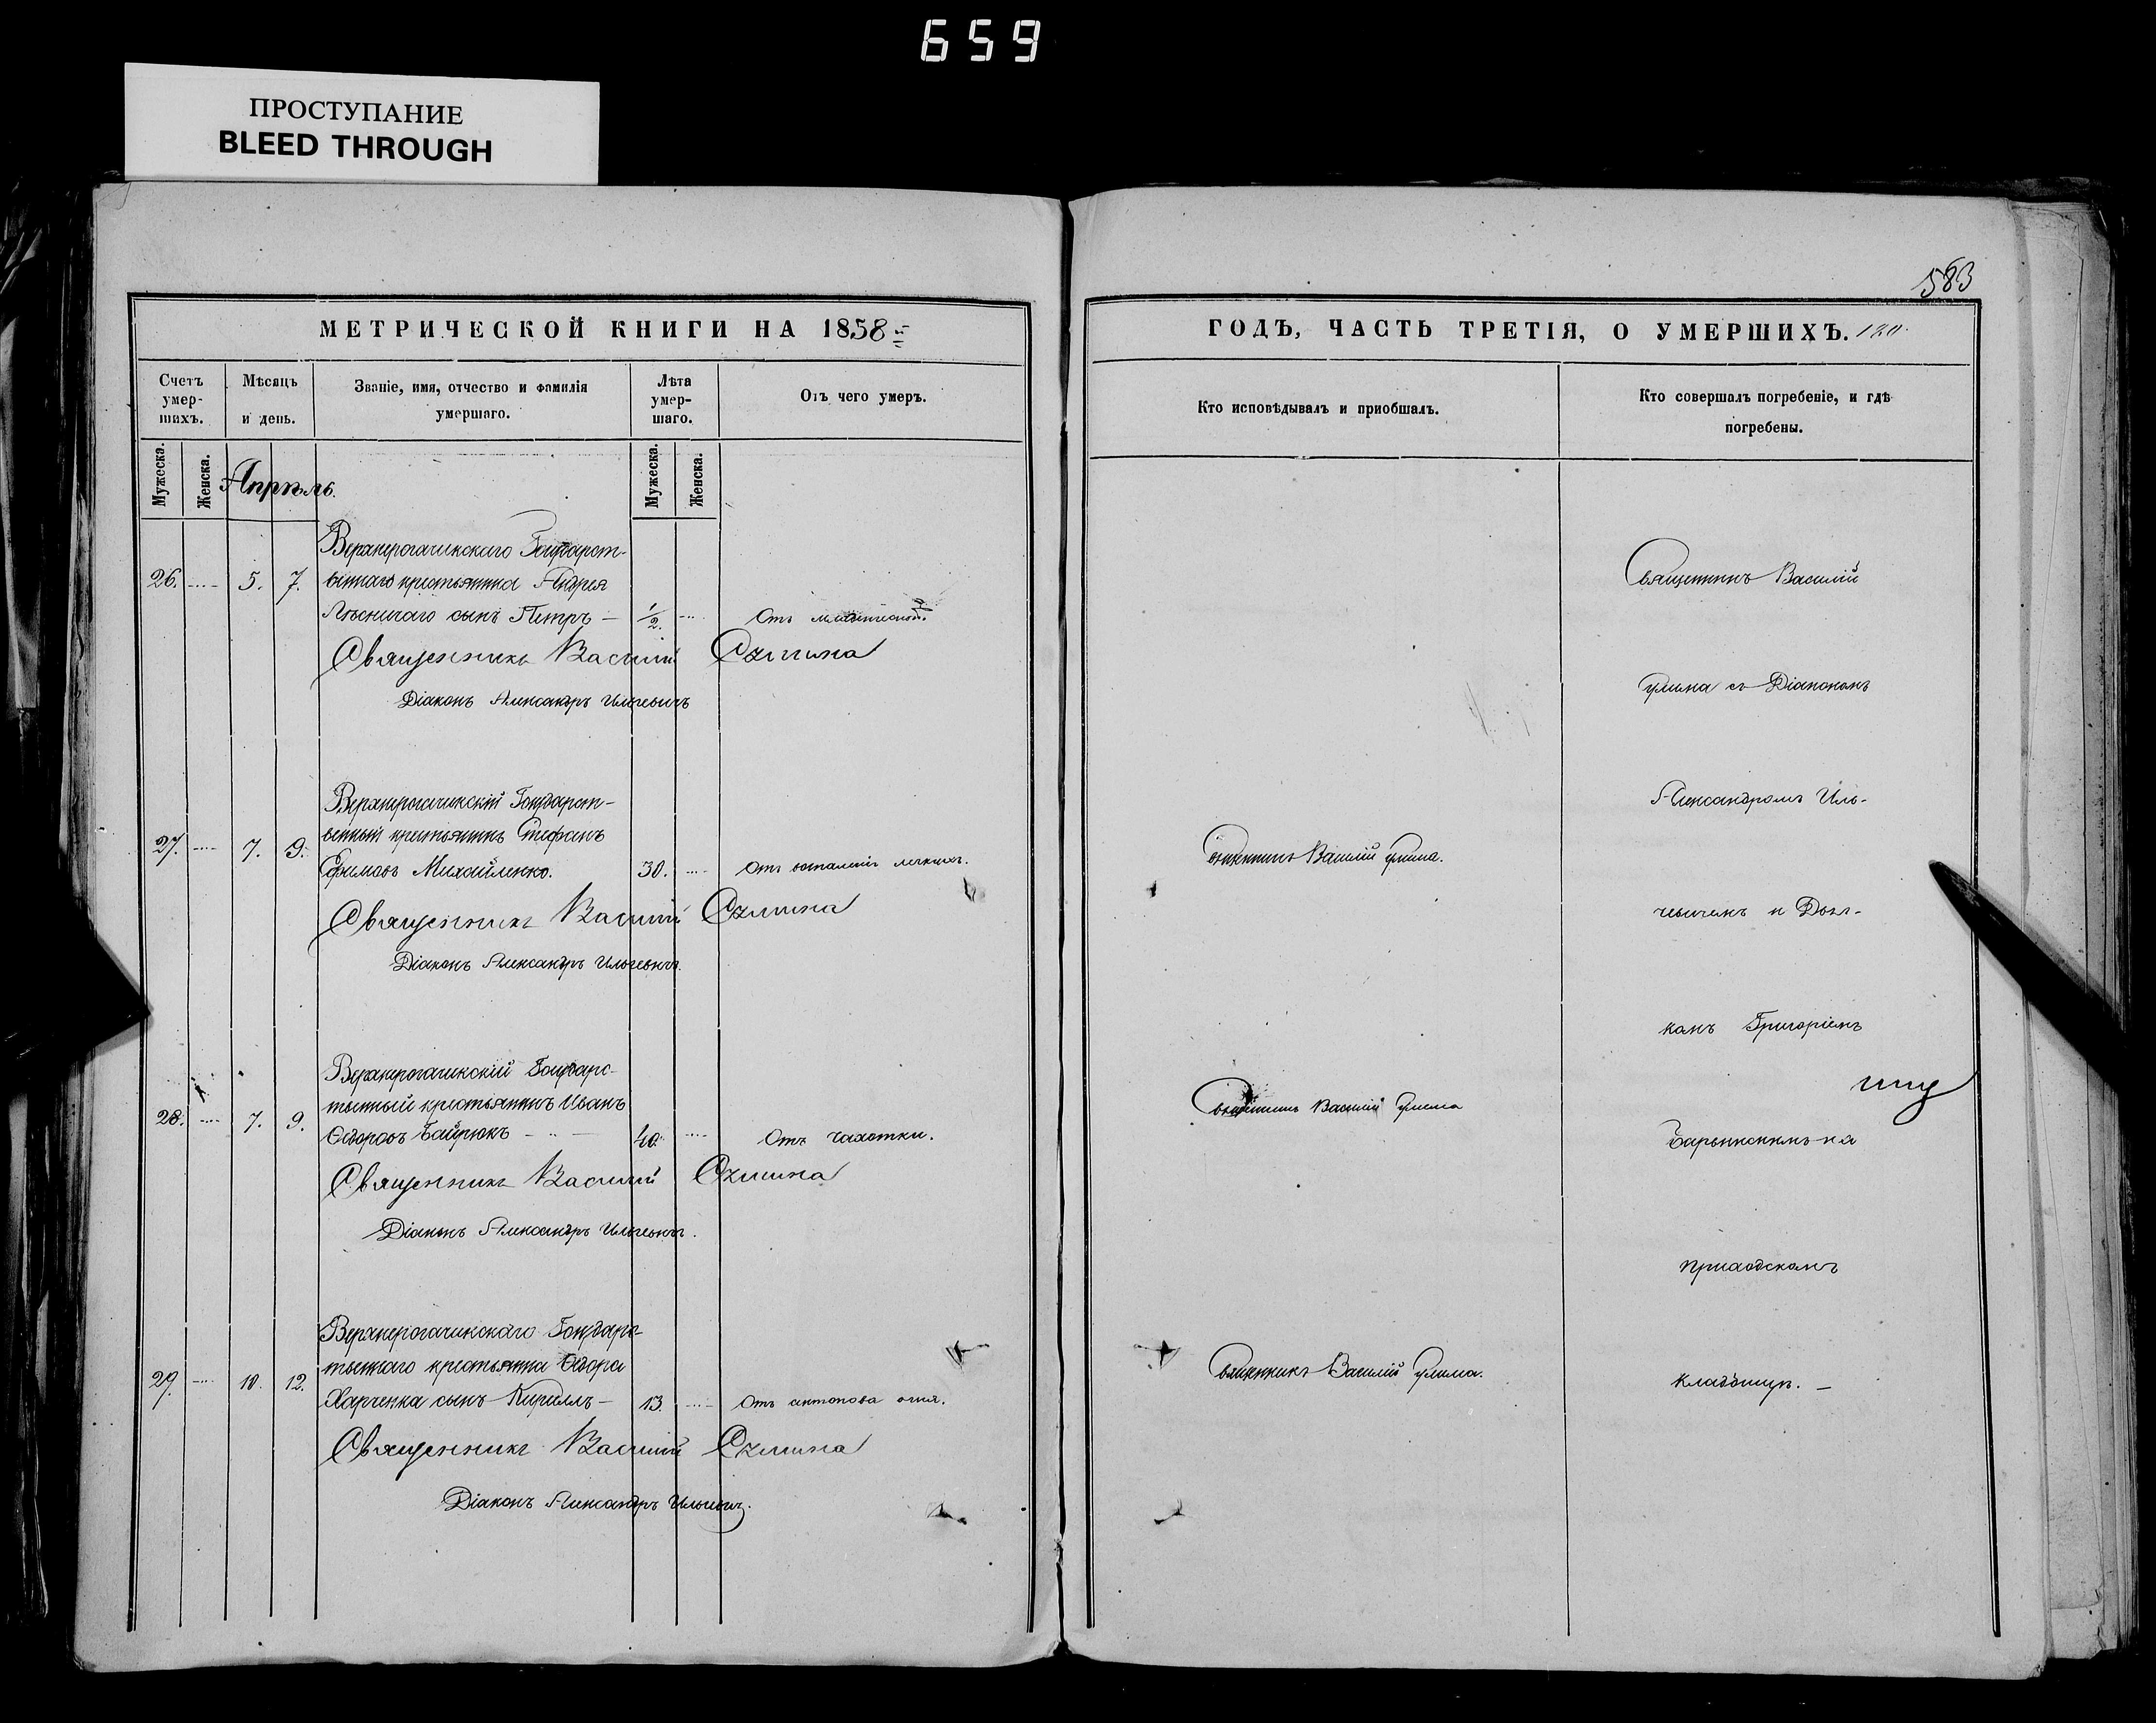 659
ПРОСТУПАНИЕ
BLEED THROUGH
583
МЕТРИЧЕСКОЙ КНИГИ НА 1858
ГОДЪ, ЧАСТЬ ТРЕТІЯ, О УМЕРШИХЪ.
Счетъ умер-шихъ.
Мѣсяцъ и день.
Званіе, имя, отчество и фамилія умершаго.
Лѣта умер-шаго.
Отъ чего умеръ.
Кто исповѣдывалъ и приобшалъ.
Кто совершалъ погребеніе, и гдѣ погребены.
Мужеска.
Женска.
Апрѣль.
Мужеска.
Женска.
Верхнерогачикскаго Государст-
26. 5. 7. веннаго крестьянина Андрея
сынъ Петръ — 1/2. Отъ
Священникъ Василій
Діаконъ Александръ Ильчевичъ
Верхнерогачикскій Государст-
27. 7. 9. венный крестьянинъ Стефанъ
Ефимовъ Михайленко. 30. Отъ воспаленія легкихъ.
Священникъ Василій
Діаконъ Александръ Ильчевичъ.
Верхнерогачикскій Государс-
28. 7. 9. твенный крестьянинъ Иванъ
Ѳедоровъ 40. Отъ чахотки.
Священникъ Василій
Діаконъ Александръ Ильчевичъ.
Верхнерогачикскаго Государс-
29. 10. 12. твеннаго крестьянина Ѳедора
Харченка сынъ Кириллъ — 13. Отъ антонова огня.
Священникъ Василій
Діаконъ Александръ Ильчевичъ.
Священникъ Василій
Священникъ Василій
Священникъ Василій
Священникъ Василій
съ Діакономъ
Александромъ Иль-
чевичемъ и Дьяч-
комъ Григоріемъ
на
приходскомъ
кладбищѣ. —